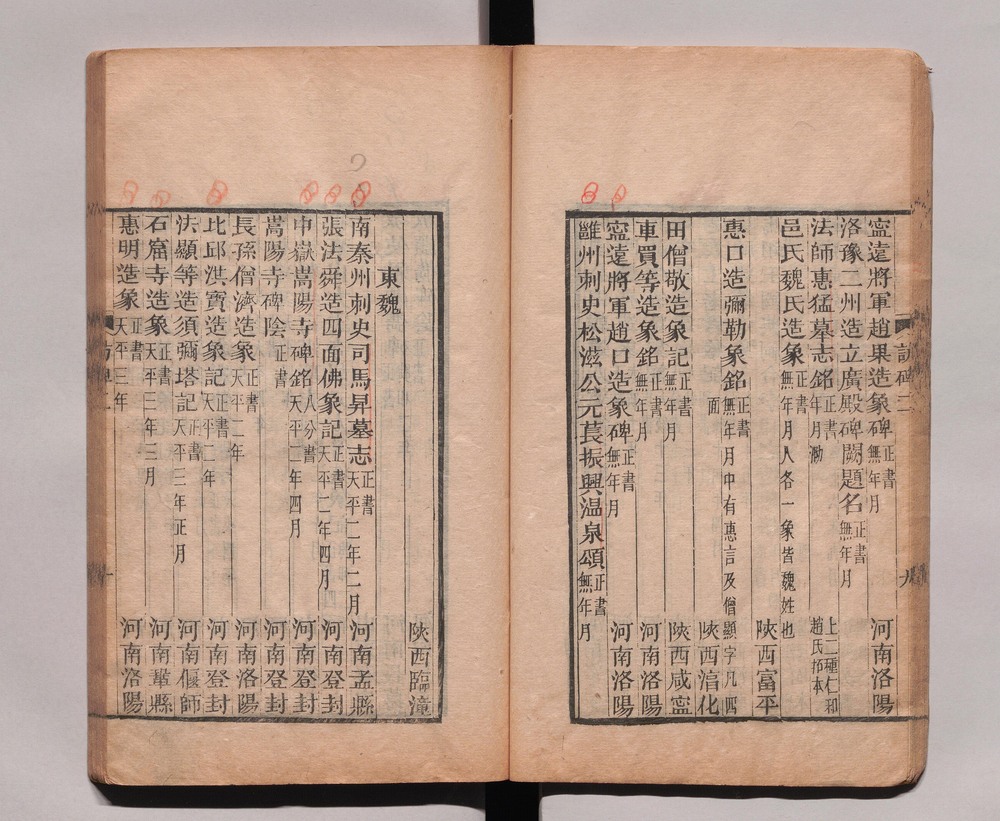 寍遠將軍趙果造象碑 正書 無年月 河南洛陽
洛豫二州造立廣殿碑闕題名 正書 無年月
法師惠猛墓志銘 正書 年月泐 上二種仁和趙氏拓本
邑氏魏氏造象 正書 無年月人各一象皆魏姓也
陝西富平
惠口造彌勒象銘 正書 無年月中有惠言及僧顯字凡四面
陝西淯化
田僧敬造象記 正書 無年月 陝西咸寍
車買等造象銘 正書 無年月 河南洛陽
寍遠將軍趙口造象碑 正書 無年月 河南洛陽
雝州刺史松滋公元萇振興温泉頌 正書 無年月
陝西臨潼
東魏
南秦州刺史司馬昇墓志 正書 天平二年二月 河南孟縣
張法舜造四面佛象記 正書 天平二年四月 河南登封
中嶽嵩陽寺碑銘 八分書 天平二年四月 河南登封
嵩陽寺碑陰 正書 河南登封
長孫僧濟造象 正書 天平二年 河南洛陽
比邱洪寶造象記 正書 天平二年 河南登封
法顯等造須彌塔記 正書 天平三年正月 河南偃師
石窟寺造象 正書 天平三年三月 河南鞏縣
惠明造象 正書 天平三年 河南洛陽